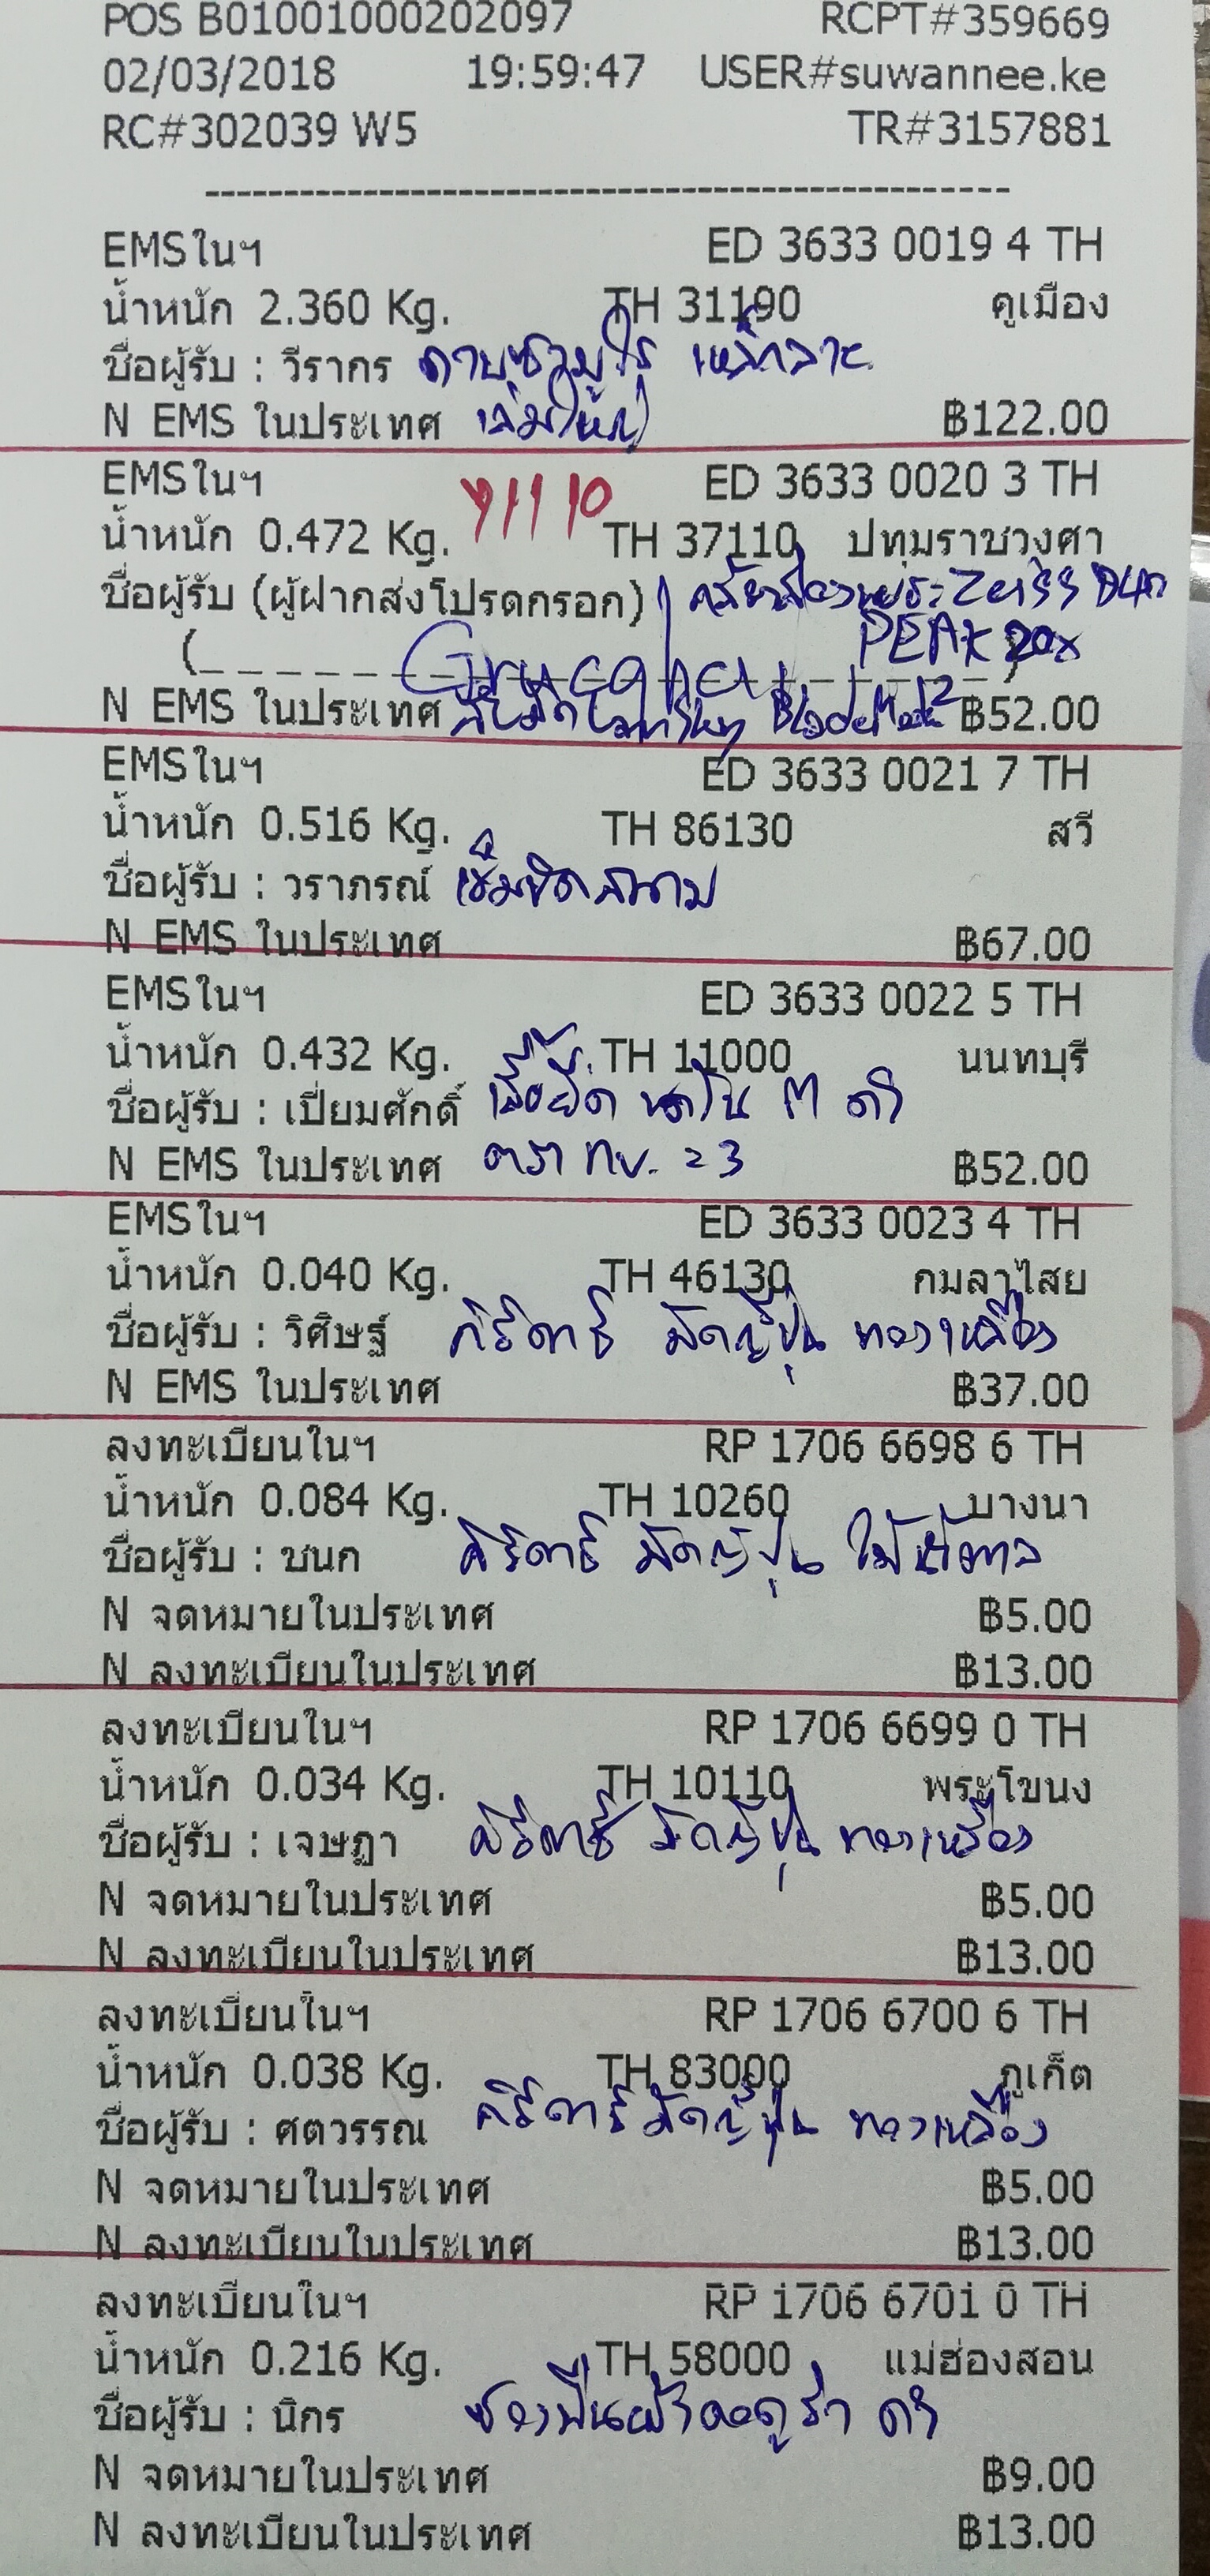 POS B01001000202097 RCPT#359669
02/03/2018 19:59:47 USER#suwannee.ke
RC#302039 W5 TR#3157881
--------------------------------------------------
EMSในฯ ED 3633 0019 4 TH
น้ำหนัก 2.360 Kg. TH 31190 คูเมือง
ชื่อผู้รับ : วีรากร ดาบซามูไร
N EMS ในประเทศ เล่มใหญ่ ฿122.00
EMSในฯ ED 3633 0020 3 TH
น้ำหนัก 0.472 Kg. TH 37110 ปทุมราชวงศา
ชื่อผู้รับ (ผู้ฝากส่งโปรดกรอก) Zeiss
PEAK 20x
N EMS ในประเทศ ฿52.00
EMSในฯ ED 3633 0021 7 TH
น้ำหนัก 0.516 Kg. TH 86130 สวี
ชื่อผู้รับ : วราภรณ์ เข็มขัดสนาม
N EMS ในประเทศ ฿67.00
EMSในฯ ED 3633 0022 5 TH
น้ำหนัก 0.432 Kg. TH 11000 นนทบุรี
ชื่อผู้รับ : เปี่ยมศักดิ์ เสื้อยืด นาโน M ดำ
N EMS ในประเทศ ตรา ทบ. = 3 ฿52.00
EMSในฯ ED 3633 0023 4 TH
น้ำหนัก 0.040 Kg. TH 46130 กมลาไสย
ชื่อผู้รับ : วิศิษฐ์ คิริดาชิ มีดญี่ปุ่น ทองเหลือง
N EMS ในประเทศ ฿37.00
ลงทะเบียนในฯ RP 1706 6698 6 TH
น้ำหนัก 0.084 Kg. TH 10260 บางนา
ชื่อผู้รับ : ชนก คิริดาชิ มีดญี่ปุ่น ไม้น้ำตาล
N จดหมายในประเทศ ฿5.00
N ลงทะเบียนในประเทศ ฿13.00
ลงทะเบียนในฯ RP 1706 6699 0 TH
น้ำหนัก 0.034 Kg. TH 10110 พระโขนง
ชื่อผู้รับ : เจษฏา คิริดาชิ มีดญี่ปุ่น ทองเหลือง
N จดหมายในประเทศ ฿5.00
N ลงทะเบียนในประเทศ ฿13.00
ลงทะเบียนในฯ RP 1706 6700 6 TH
น้ำหนัก 0.038 Kg. TH 83000 ภูเก็ต
ชื่อผู้รับ : ศตวรรณ คิริดาชิ มีดญี่ปุ่น ทองเหลือง
N จดหมายในประเทศ ฿5.00
N ลงทะเบียนในประเทศ ฿13.00
ลงทะเบียนในฯ RP 1706 6701 0 TH
น้ำหนัก 0.216 Kg. TH 58000 แม่ฮ่องสอน
ชื่อผู้รับ : นิกร ซองปืนผ้าคอดูร่า ดำ
N จดหมายในประเทศ ฿9.00
N ลงทะเบียนในประเทศ ฿13.00